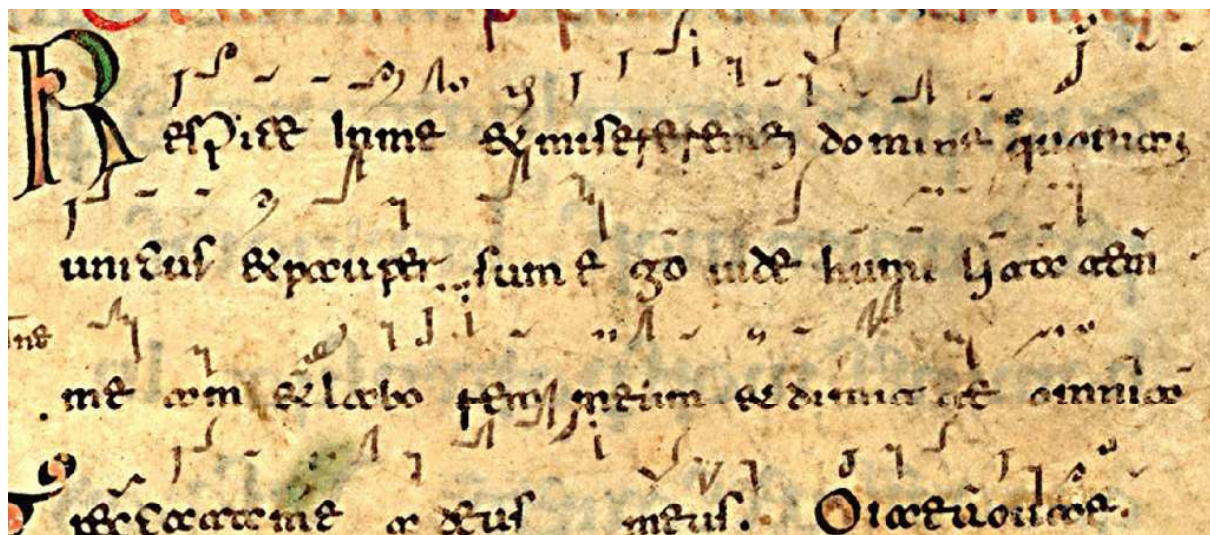 Respice inme &miserere mei domine quoniam
unicus &pauper sum ego uide humilitatem
me am & labo rem meum & dimitte omnia
peccata me a deus meus.